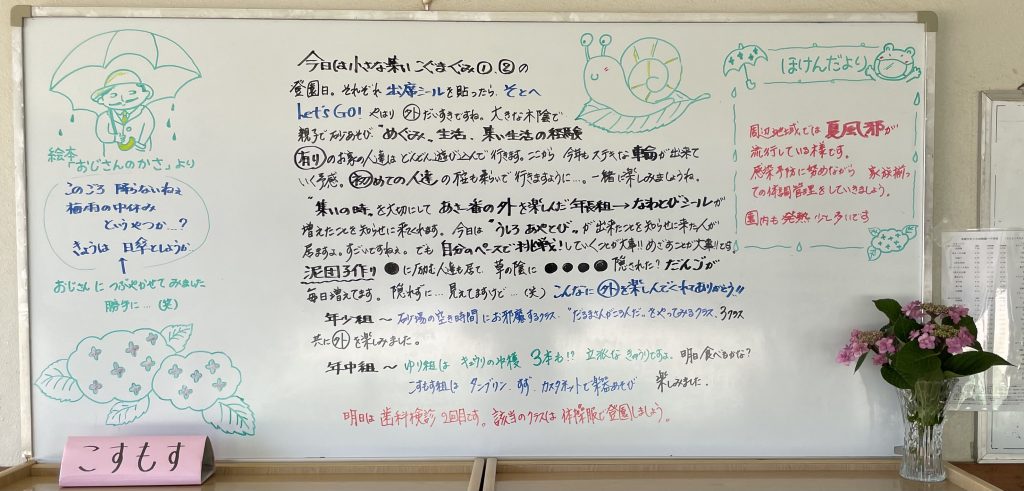 絵本
「おじさんのかさ」より
このごろ 降らないねぇ
梅雨の中休み
というやつか…?
きょうは 日傘でしょうか
おじさんに つぶやかせてみました
勝手に…(笑)
こすもす
今日は小さな集い こぐまぐみ①、②の
登園日。それぞれ 出席シールを貼ったら、そとへ
Let's GO! やはり 外 だいすきですね。大きな木陰で
親子で砂あそび。"めぐみ、生活、集い生活の経験
有り のお客の人達は どんどん遊び込んで行きます。ここから 今年もステキな 輪が出来て
いく予感。初めての人達 の 柱も柔らいで行きますように…。一緒に楽しみましょうね。
"集いの時"を大切にして あさ一番の 外を楽しんだ 年長組→なわとびシールが
増えたことを知らせに来てくれます。今日は"うしろ あやとび"が出来たことを知らせに来た人が
居ますよ。すごいですねぇ。でも 自分のペースで していくことが大事!!めざすことが大事!!です。
泥団子作り ●に励む人達も居て、草の陰に ●●●● 隠された? だんごが
毎日増えてます。隠れずに…見えてますけど…(笑) こんなに 外を楽しんでくれてありがとう!!
年少組〜 砂場の空き時間に お邪魔するクラス、"だるまさんがころんだ"をやってみるクラス、3クラス
共に 外 を楽しみました。
年中組〜 ゆり組は キュウリの収穫 3本も!? 立派な きゅうりですよ。明日食べるかな?
こすもす組は タンブリン、すず、カスタネットで楽器あそび 楽しみました。
明日は 歯科検診 2回目です。該当のクラスは 体操服で登園しましょう。
ほけんだより
周辺地域では 夏風邪が
流行している様です。
感染予防に努めながら 家族揃
っての体調管理をしていきましょう。
園内も 発熱 少しいです